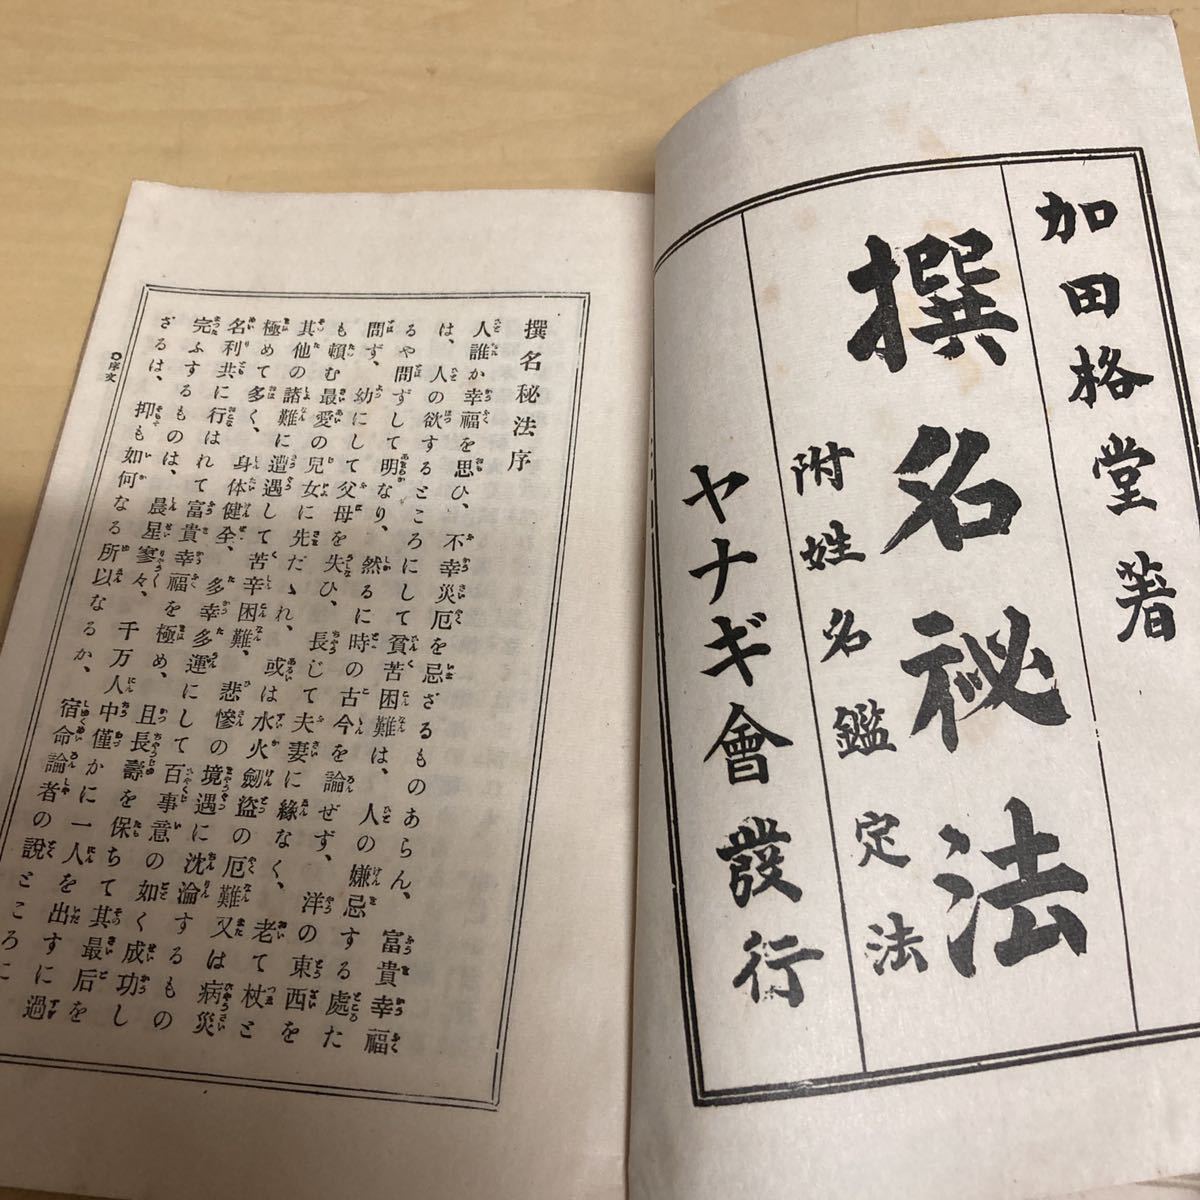 加田格堂著
撰名秘法
附姓名鑑定法
ヤナギ會發行
撰名秘法序
人誰か幸福を思ひ、不幸災厄を忌ざるものあらん、富貴幸福
は、人の欲するところにして貧苦困難は、人の嫌忌する處た
るや問ずして明なり、然るに時の古今を論ぜず、洋の東西を
問ず、幼にして父母を失ひ、長じて夫妻に緣なく、老て杖と
も頼む最愛の兒女に先だゝれ、或は水火劍盜の厄難又は病災
其他の諸難に遭遇して苦辛困難、悲慘の境遇に沈淪するもの
極めて多く、身体健全、多幸多運にして百事意の如く成功し
名利共に行はれて富貴幸福を極め、且長壽を保ちて其最后を
完ふするものは、晨星寥々、千万人中僅かに一人を出すに過
ざるは、抑も如何なる所以なるか、宿命論者の說ところに
◯序文